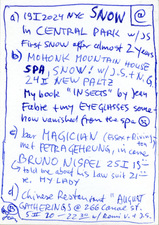 a) 19 I 2024 NYC SNOW @
IN CENTRAL PARK w/JS
First SNOW after almost 2 years
b) MOHONK MOUNTAIN HOUSE
SPA, SNOW! w/ J.S. + N.G.
24 I NEW PALTZ
My book "INSECTS" by Jean
Fabre + my EYEGLASSES some
how vanished from the spa
c) bar MAGICIAN (Essex + Rivington)
met PETRA GEHRUNG, in came
BRUNO NISPEL 25 I 18
told me about his LAW suit 21
MY LADY
d) Chinese Restaurant "AUGUST
GATHERINGS @ 266 Canal St.
5 II 20 - 22 w/ Romi V. + JS.